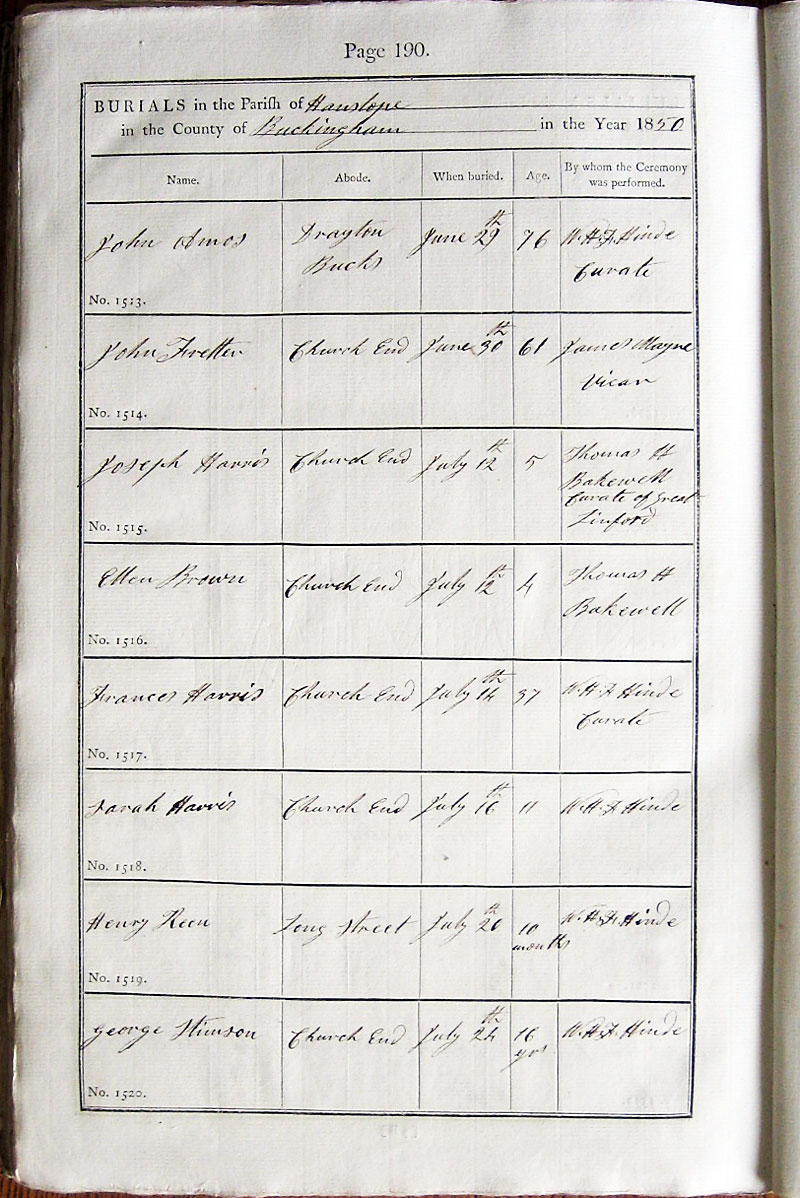 Page 190.
BURIALS in the Parish of Hanslope
in the County of Buckingham in the Year 1850
Name. Abode. When buried. Age. By whom the Ceremony was performed.
John Amos Drayton Bucks June 29th 76 W.H.F. Hinde Curate
No. 1513.
John Fretter Church End June 30th 61 James Mayne Vicar
No. 1514.
Joseph Harris Church End July 12th 5 Thomas H Bakewell Curate of Great Linford
No. 1515.
Ellen Brown Church End July 12th 4 Thomas H Bakewell
No. 1516.
Frances Harris Church End July 14th 37 W.H.F. Hinde Curate
No. 1517.
Sarah Harris Church End July 16th 11 W.H.F. Hinde
No. 1518.
Henry Keen Long Street July 20th 10 months W.H.F. Hinde
No. 1519.
George Stimson Church End July 24th 16 yrs W.H.F. Hinde
No. 1520.